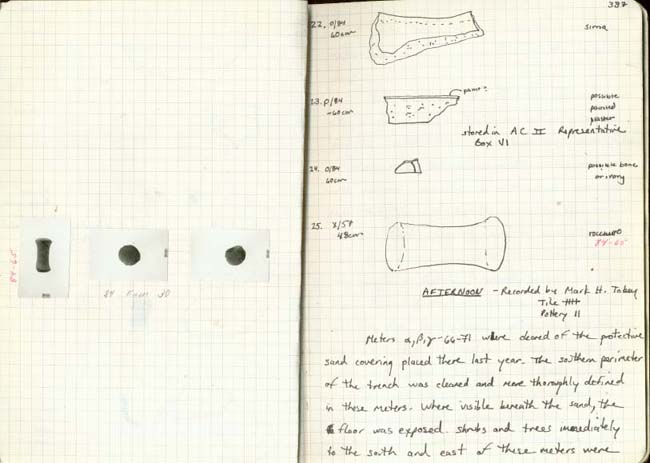 84-65
84 From 30
387
22. O/84
60cm
sima
23. P/84
~60cm
paint?
possible
painted
plaster
stored in AC II Representative
Box VI
24. O/84
60cm
possible bone
or ivory
25. X/57
48cm
rocchetto
84-65
AFTERNOON - Recorded by Mark H. Tobey
Tile 卌
Pottery II
Meters α,β,γ-66-71 were cleared of the protective
sand covering placed there last year. The southern perimeter
of the trench was cleaned and more thoroughly defined
in these meters. Where visible beneath the sand, the
floor was exposed. Shrubs and trees immediately
to the south and east of these meters were